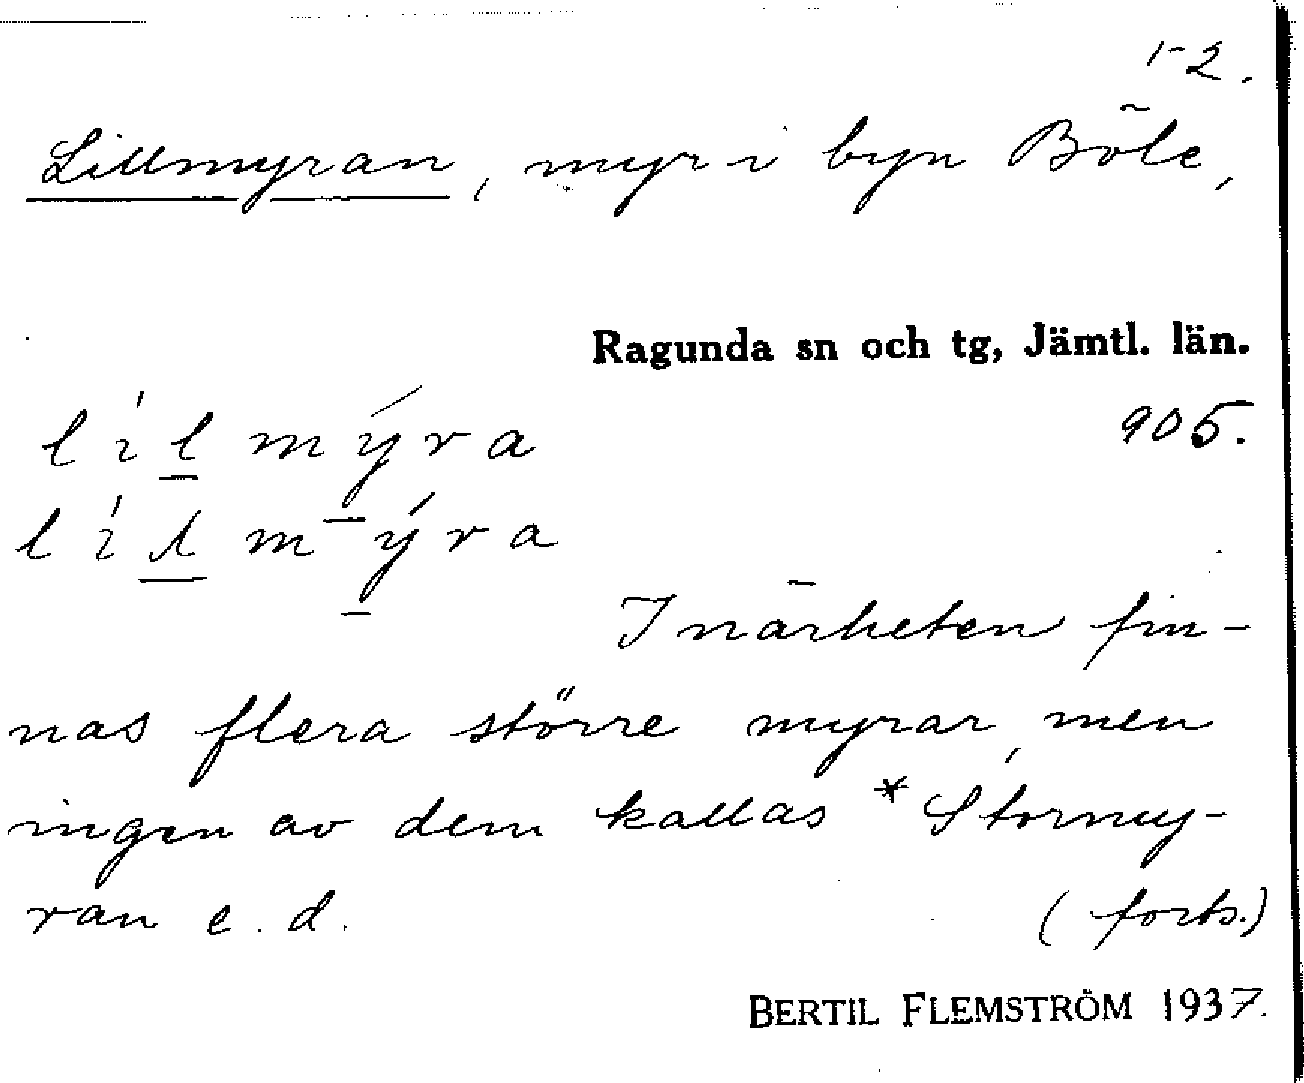 1-2.
Lillmyran, myr i byn Böle,
Ragunda sn och tg, Jämtl. län.
905.
lílmýra
lílmýra
I närheten fin-
nas flera större myrar, men
ingen av dem kallas *Stormy-
ran e. d.
(forts.)
BERTIL FLEMSTRÖM 1937.